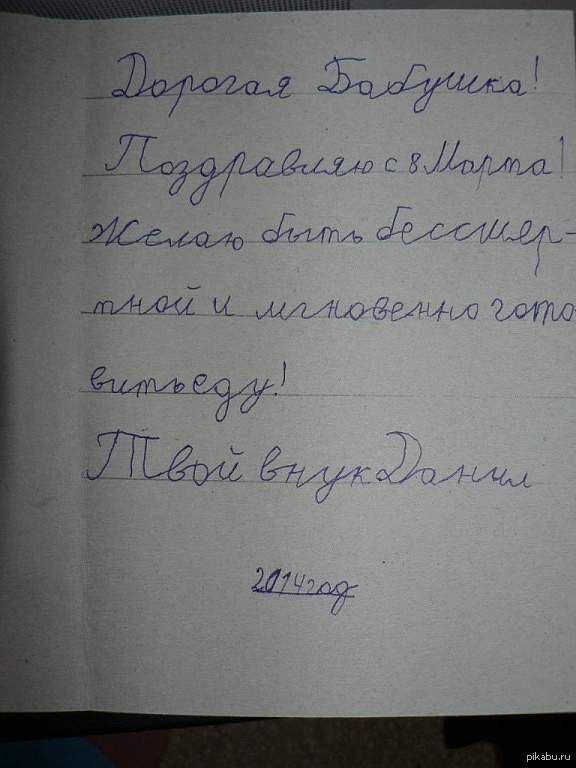 Дорогая Бабушка!
Поздравляю с 8 Марта!
Желаю быть бессмер-
тной и мгновенно гото
вить еду!
Твой внук Данил
2014 год
pikabu.ru